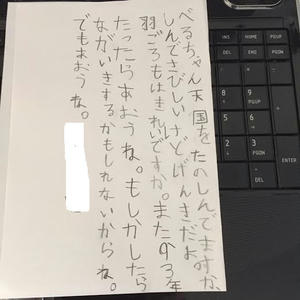 べるちゃん天国をたのしんでますか、
しんでさびしいけどげんきだよ
羽ごろもはきれいですか。また93年
たったらあおうね。もしかしたら
ながいきするかもしれないからね。
でもあおうね。
INS HOME PGUP
DEL END PGDN
8 9 PGUP
5 6
2 3 PGDN
DEL